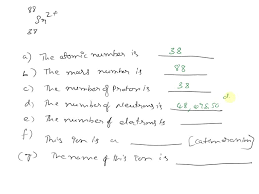 88
Sr 2+
38
a) The atomic number is 38
b) The mass number is 88
c) The number of Proton is 38
d) The number of neutrons is
e) The number of electrons is
f) This ion is a
(g) The name of this ion is